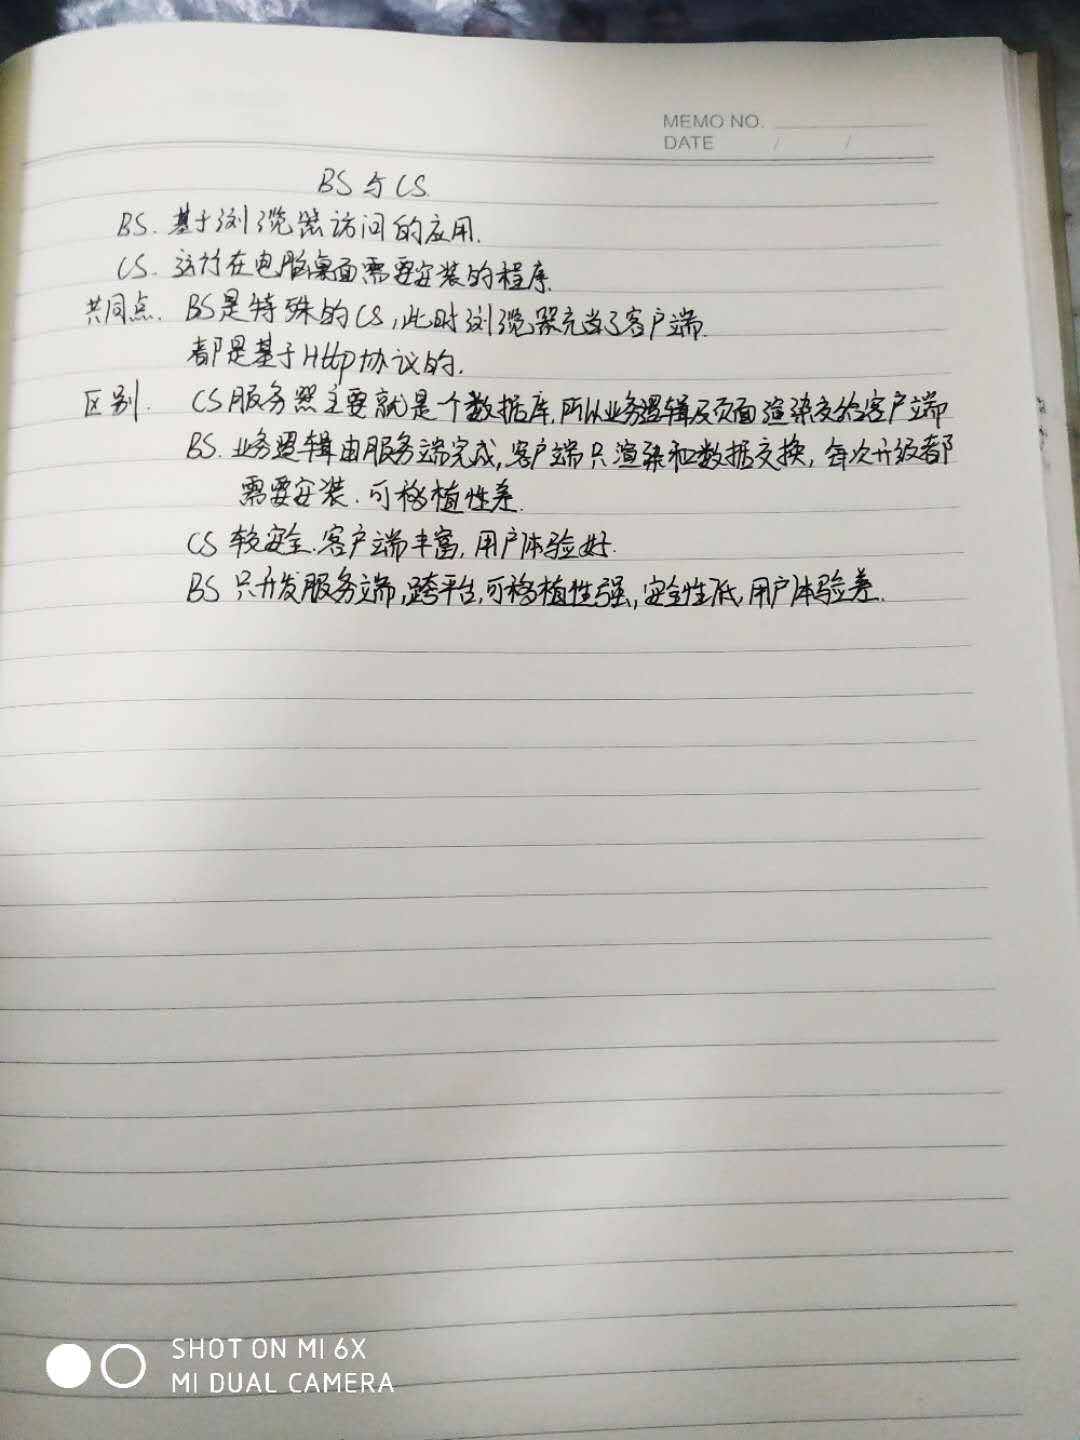 MEMO NO.
DATE / /
BS与CS
BS. 基于浏览器访问的应用.
CS. 运行在电脑桌面需要安装的程序.
共同点. BS是特殊的CS,此时浏览器充当了客户端.
都是基于Http协议的.
区别. CS服务器主要就是个数据库,所以业务逻辑及页面渲染交给客户端
BS. 业务逻辑由服务端完成,客户端只渲染和数据交换, 每次升级都
需要安装. 可移植性差.
CS 较安全.客户端丰富, 用户体验好.
BS 只开发服务端,跨平台,可移植性强,安全性低,用户体验差.
SHOT ON MI 6X
MI DUAL CAMERA